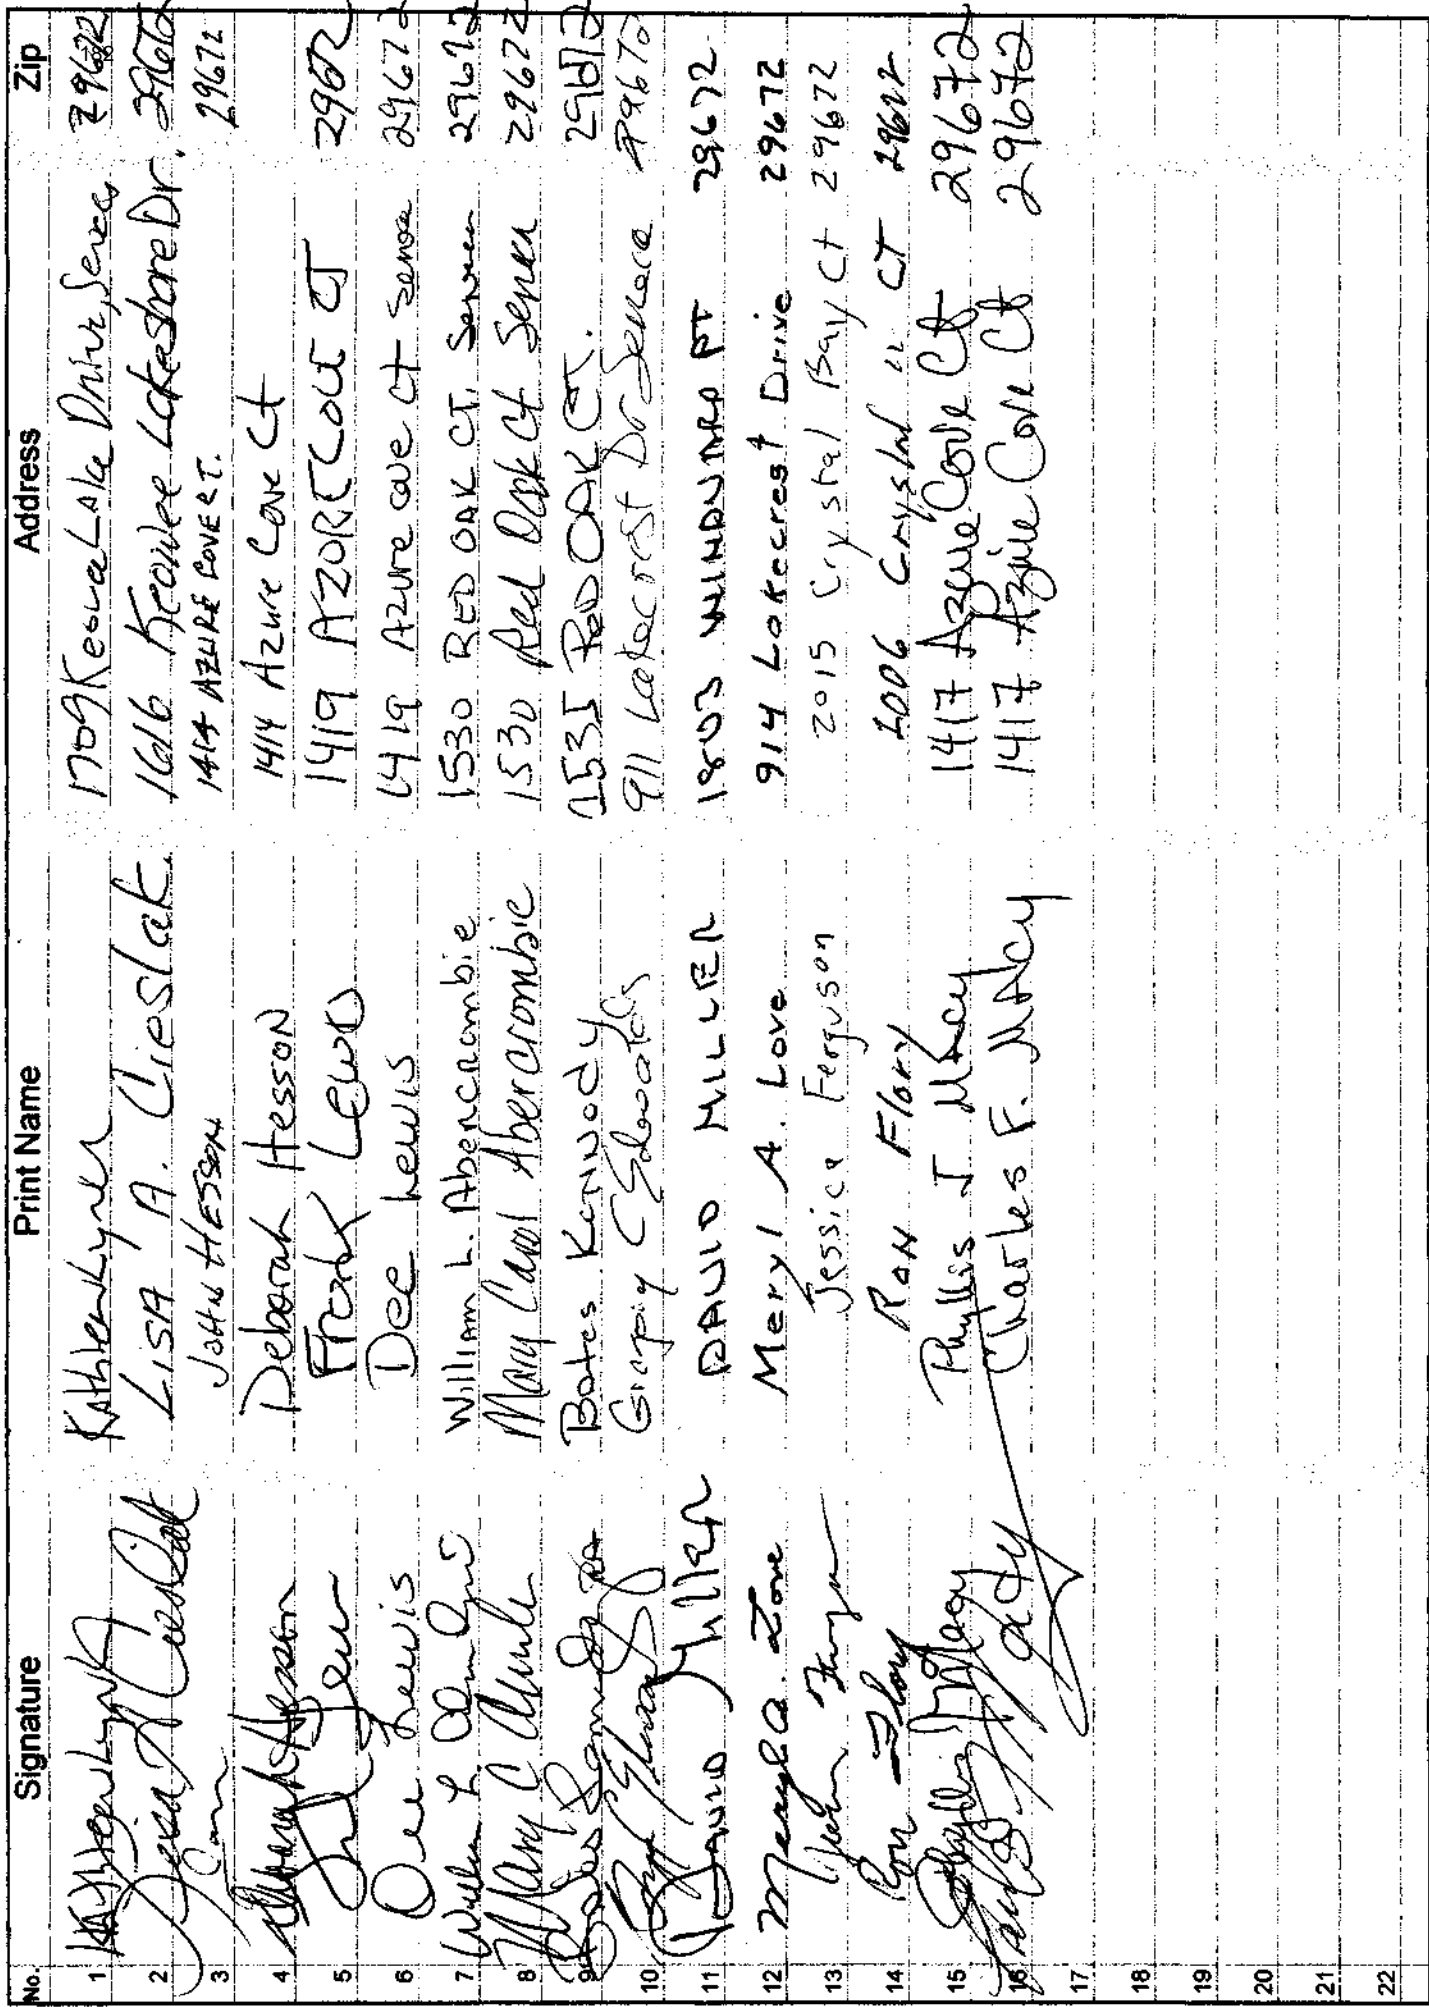 No. Signature Print Name Address Zip
1 Kathleen Lynch Kathleen Lynch 1709 Keowee Lake Drive, Seneca 29672
2 Lisa A Cieslak LISA A. Cieslak 1616 Keowee Lakeshore Dr. 29672
3 JOHN HESSON 1414 AZURE COVE CT. 29672
4 Deborah Hesson Deborah Hesson 1414 Azure Cove Ct
5 Frank Lewis 1419 AZURE COVE CT 29672
6 Dee Lewis Dee Lewis 1419 Azure cove ct Seneca 29672
7 William L. Abercrombie 1530 RED OAK CT. Seneca 29672
8 Mary C Mary Carol Abercrombie 1530 Red Oak Ct Seneca 29672
9 Bates Kennedy 1535 RED OAK CT. 29672
10 911 Lakecrest Dr Seneca 29672
11 DAVID MILLER DAVID MILLER 1803 WINDWARD PT 29672
12 Meryl A. Love Meryl A. Love 914 Lakecrest Drive 29672
13 Jessica Ferguson 2015 Crystal Bay Ct 29672
14 Ron Flory RON Flory 2006 Crystal " CT 29672
15 Phyllis J Macy Phyllis J. Macy 1417 Azure Cove Ct 29672
16 Charles F. Macy 1417 Azure Cove Ct 29672
17
18
19
20
21
22